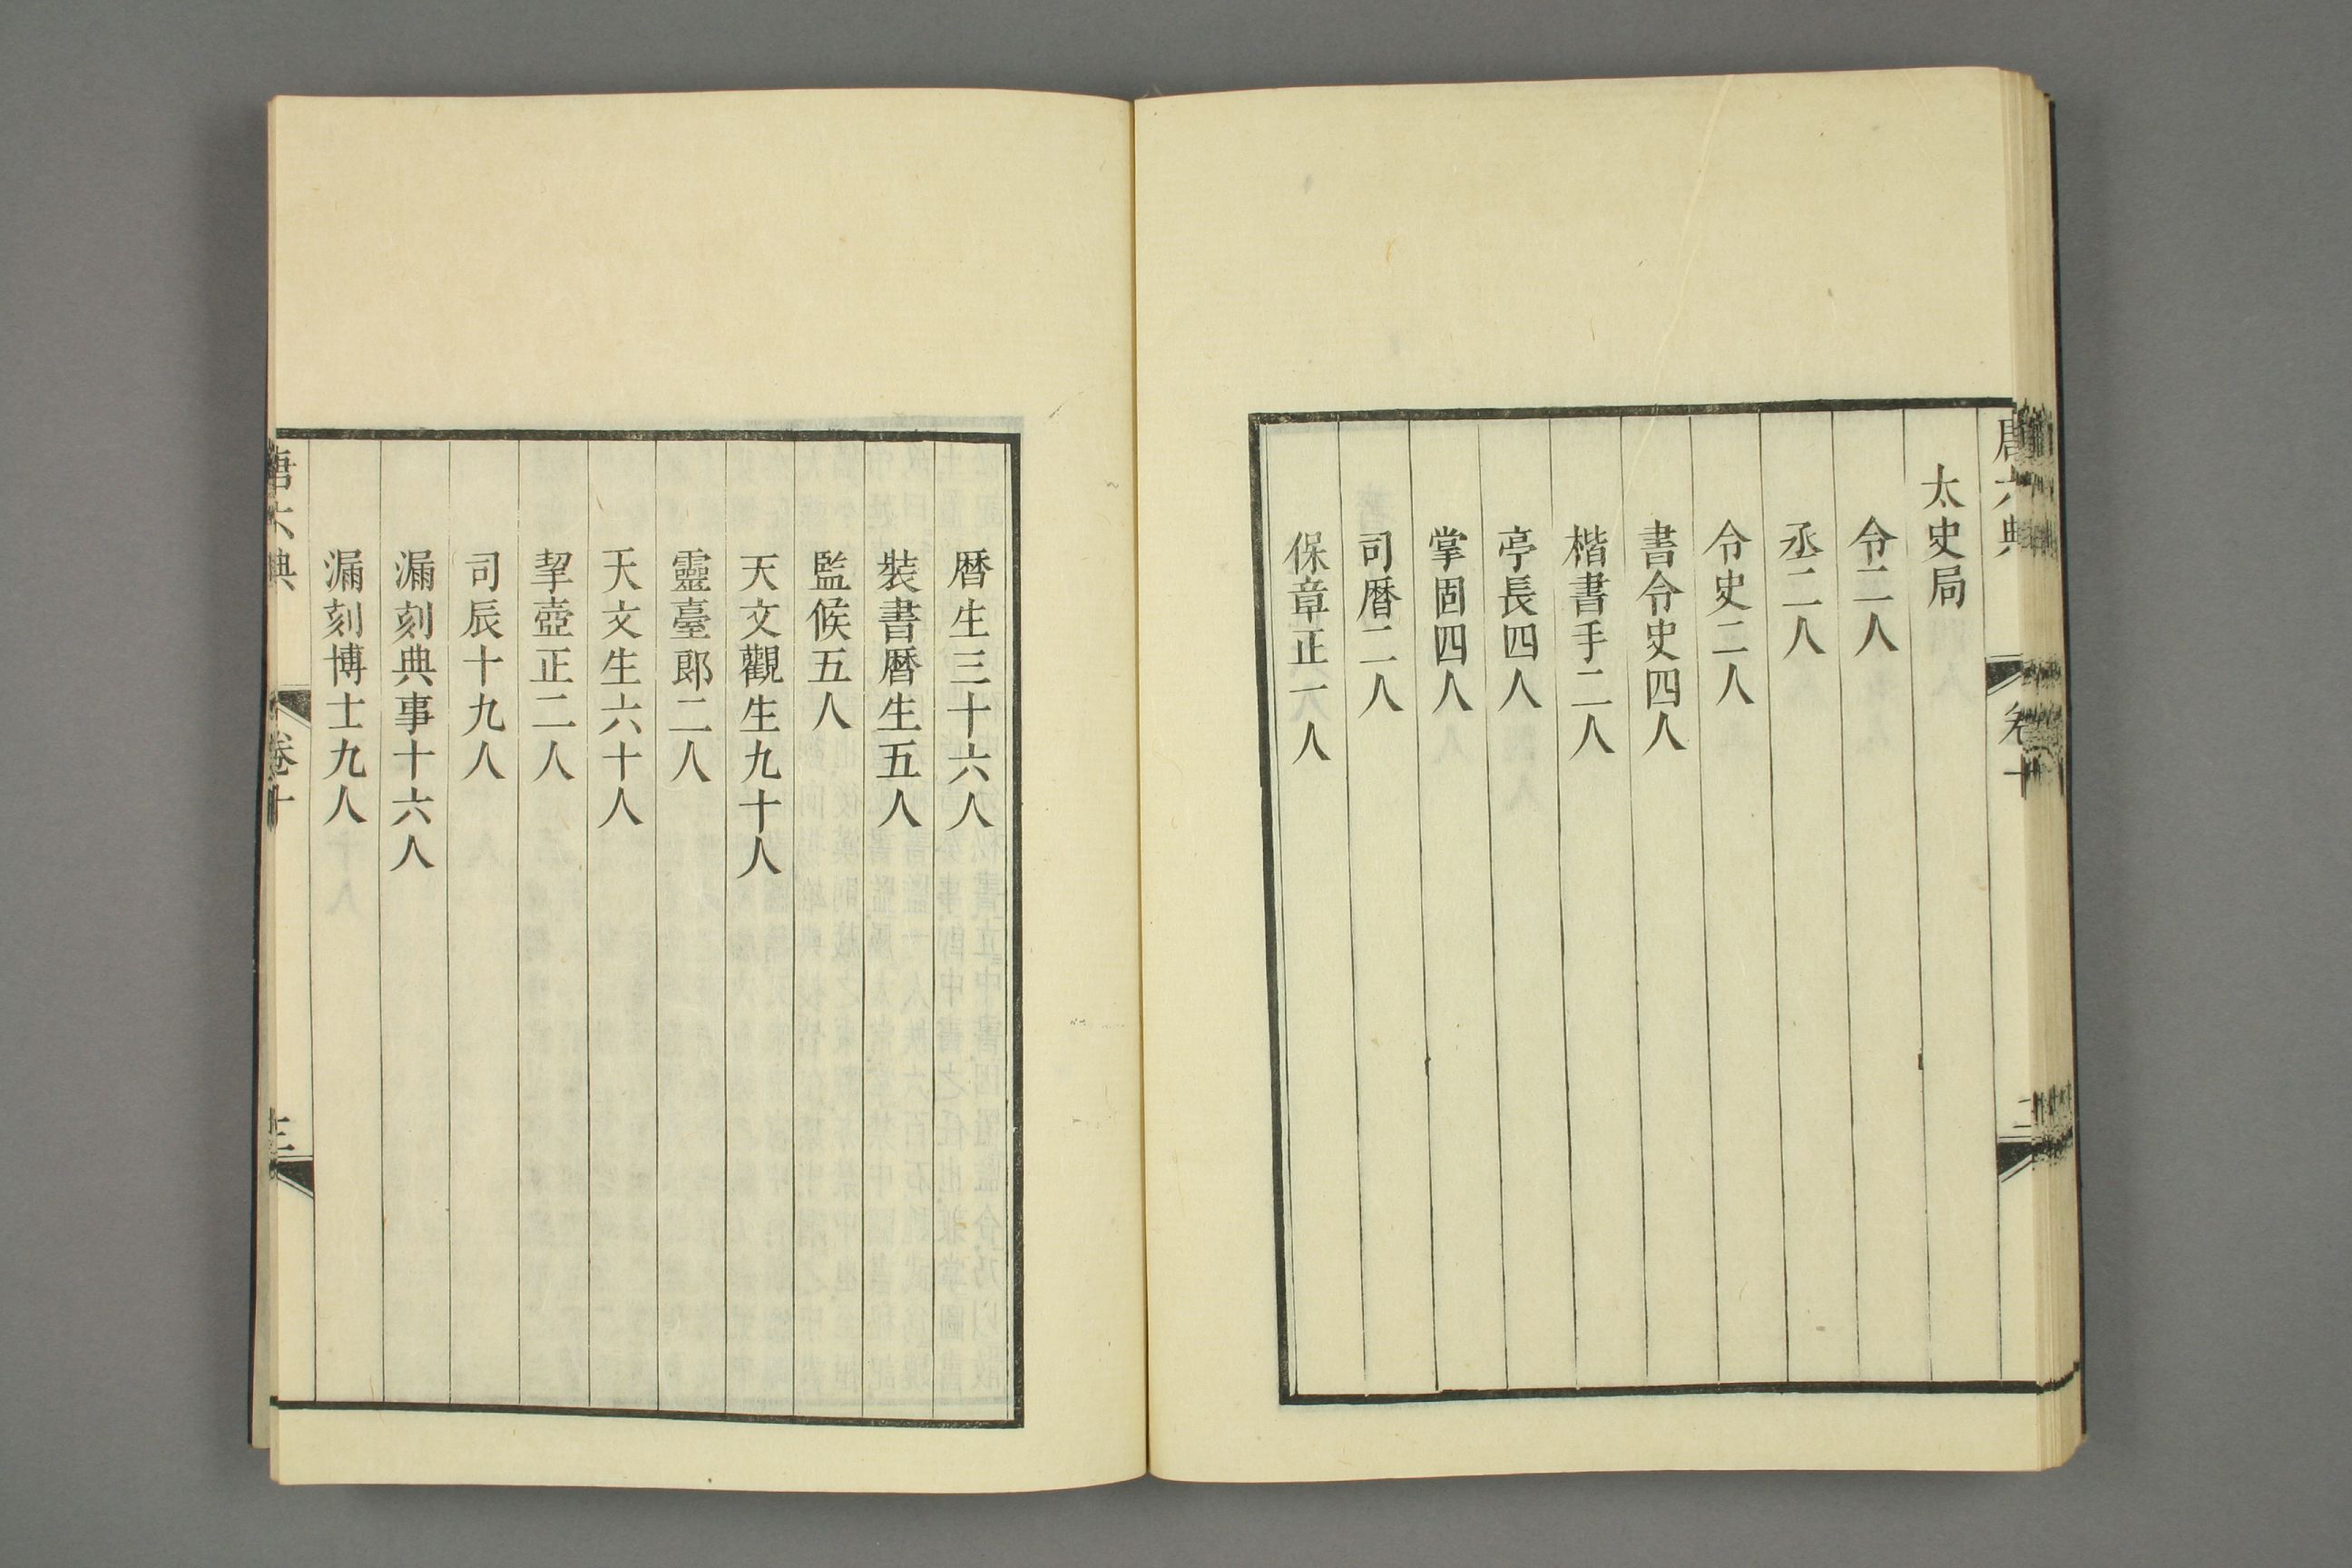 唐六典 卷十 二
太史局
令二人
丞二人
令史二人
書令史四人
楷書手二人
亭長四人
掌固四人
司曆二人
保章正一人
曆生三十六人
裝書曆生五人
監候五人
天文觀生九十人
靈臺郎二人
天文生六十人
挈壺正二人
司辰十九人
漏刻典事十六人
漏刻博士九人
唐六典 卷十 三